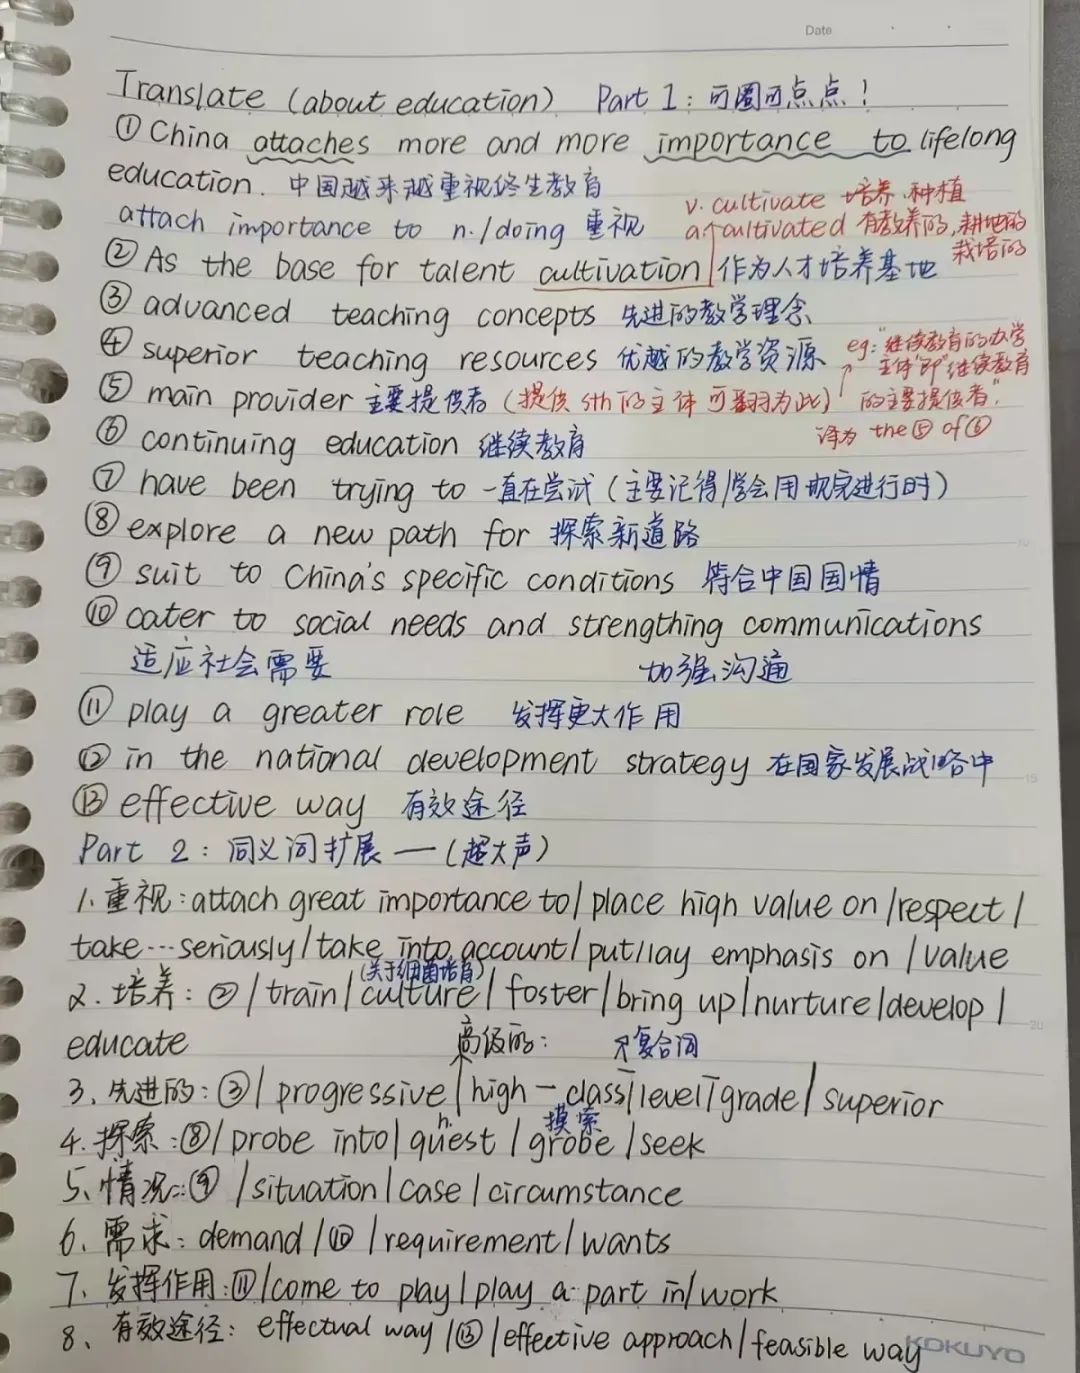 Date
Translate (about education) Part 1: 可圈可点点!
① China attaches more and more importance to lifelong
education. 中国越来越重视终生教育
attach importance to n./doing 重视
v. cultivate 培养、种植
a. cultivated 有教养的,耕地的
栽培的
② As the base for talent cultivation 作为人才培养基地
③ advanced teaching concepts 先进的教学理念
④ superior teaching resources 优越的教学资源
eg:"继续教育的办学
主体"即"继续教育
的主要提供者"
译为 the ⑤ of ⑥
⑤ main provider 主要提供者 (提供 sth 的主体可翻为此)
⑥ continuing education 继续教育
⑦ have been trying to 一直在尝试 (主要记得/学会用现完进行时)
⑧ explore a new path for 探索新道路
⑨ suit to China's specific conditions 符合中国国情
⑩ cater to social needs and strengthing communications
适应社会需要 加强沟通
⑪ play a greater role 发挥更大作用
⑫ in the national development strategy 在国家发展战略中
⑬ effective way 有效途径
Part 2: 同义词扩展 — (超大声)
1. 重视: attach great importance to/place high value on/respect/
take...seriously/take into account/put/lay emphasis on/value
(关于细菌培育)
2. 培养: ②/train/culture/foster/bring up/nurture/develop/
educate
高级的: 复合词
3. 先进的: ③/progressive/high-class/level/grade/superior
n. 摸索
4. 探索: ⑧/probe into/quest/grobe/seek
5. 情况: ⑨/situation/case/circumstance
6. 需求: demand/⑩/requirement/wants
7. 发挥作用: ⑪/come to play/play a part in/work
8. 有效途径: effectual way/⑬/effective approach/feasible way
KOKUYO